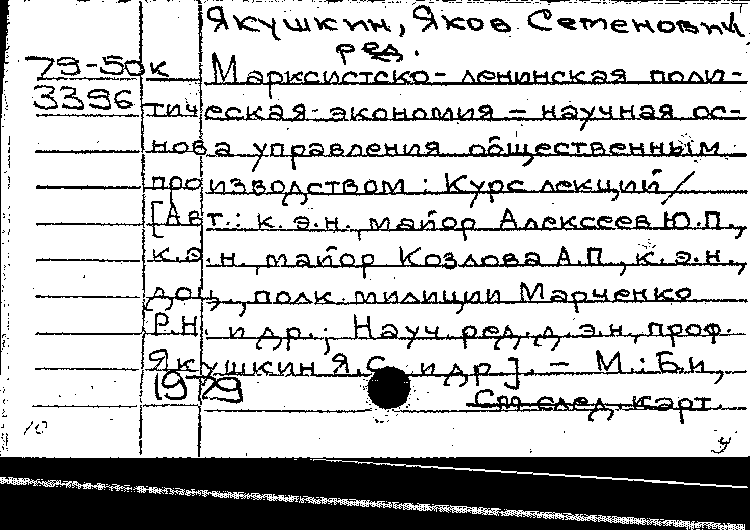 Якушкин, Яков Семенович,
ред.
79-50к Марксистско-ленинская поли-
3396 тическая экономия — научная ос-
нова управления общественным
производством: Курс лекций/
[Авт.: к.э.н., майор Алексеев Ю.П.,
к.э.н., майор Козлова А.П., к.э.н.,
доц., полк. милиции Марченко
Р.Н. и др.; Науч. ред. д.э.н., проф.
Якушкин Я.С. и др]. — М.: Б.и,
1979
См след. карт.
10
У